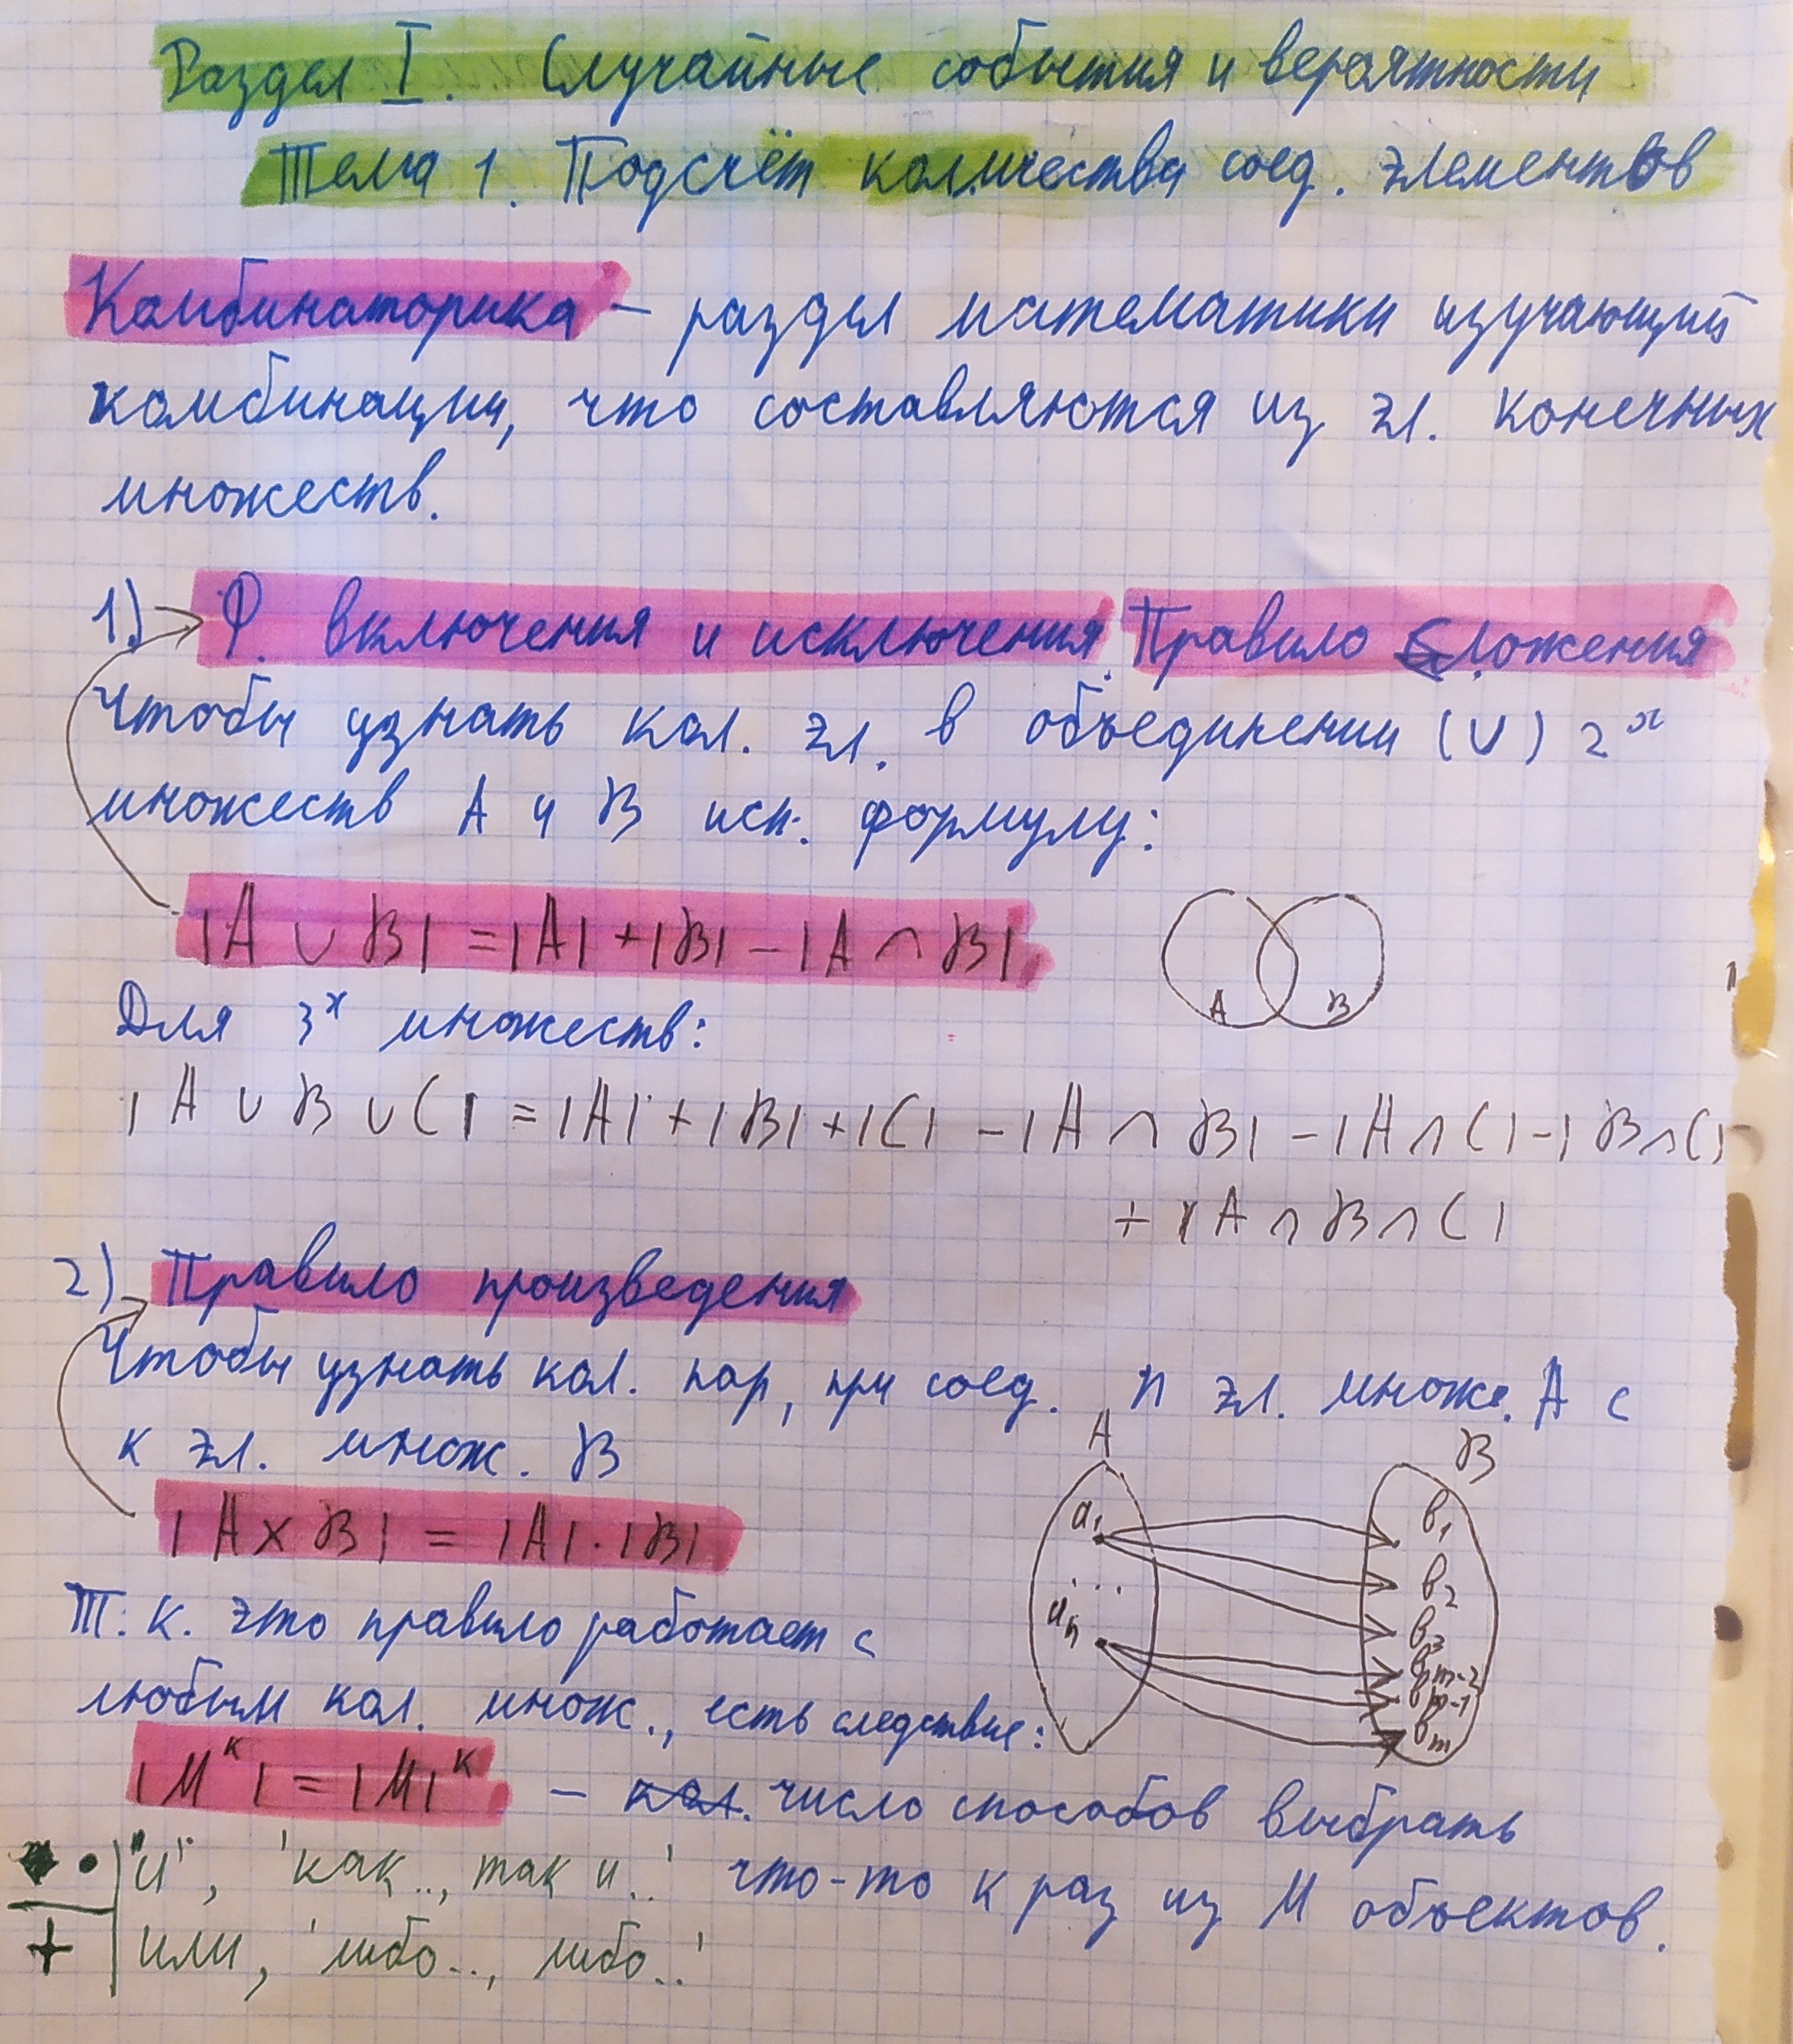 Раздел I. Случайные события и вероятности
Тема 1. Подсчёт количества соед. элементов
Комбинаторика – раздел математики изучающий
комбинации, что составляются из эл. конечных
множеств.
1) Ф. включения и исключения. Правило сложения
Чтобы узнать кол. эл. в объединении (∪) 2х
множеств A и B исп. формулу:
|A ∪ B| = |A| + |B| – |A ∩ B|
A B
Для 3х множеств:
|A ∪ B ∪ C| = |A| + |B| + |C| – |A ∩ B| – |A ∩ C| – |B ∩ C|
+ |A ∩ B ∩ C|
2) Правило произведения
Чтобы узнать кол. пар, при соед. n эл. множ. A с
к эл. множ. B
A B
|A × B| = |A| · |B|
a₁ ... aₙ
b₁ b₂ b₃ bₘ₋₂ bₘ₋₁ bₘ
Т. к. это правило работает с
любым кол. множ., есть следствие:
|Mᴷ| = |M|ᴷ – кол. число способов выбрать
что-то к раз из M объектов.
• | "и", 'как.., так и..'
+ | или, 'либо.., либо..'